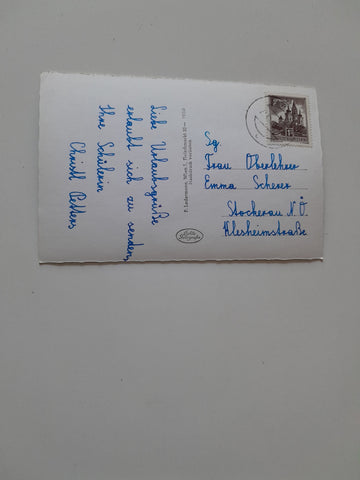 Liebe Urlaubsgrüße
erlaubt sich zu senden,
Ihre Schülerin
Christl Petters
P. Ledermann, Wien I., Fleischmarkt 20
Nachdruck verboten
Echte
Sg.
Frau Oberlehrer
Emma Scherer
Stockerau N.Ö.
Klesheimstraße